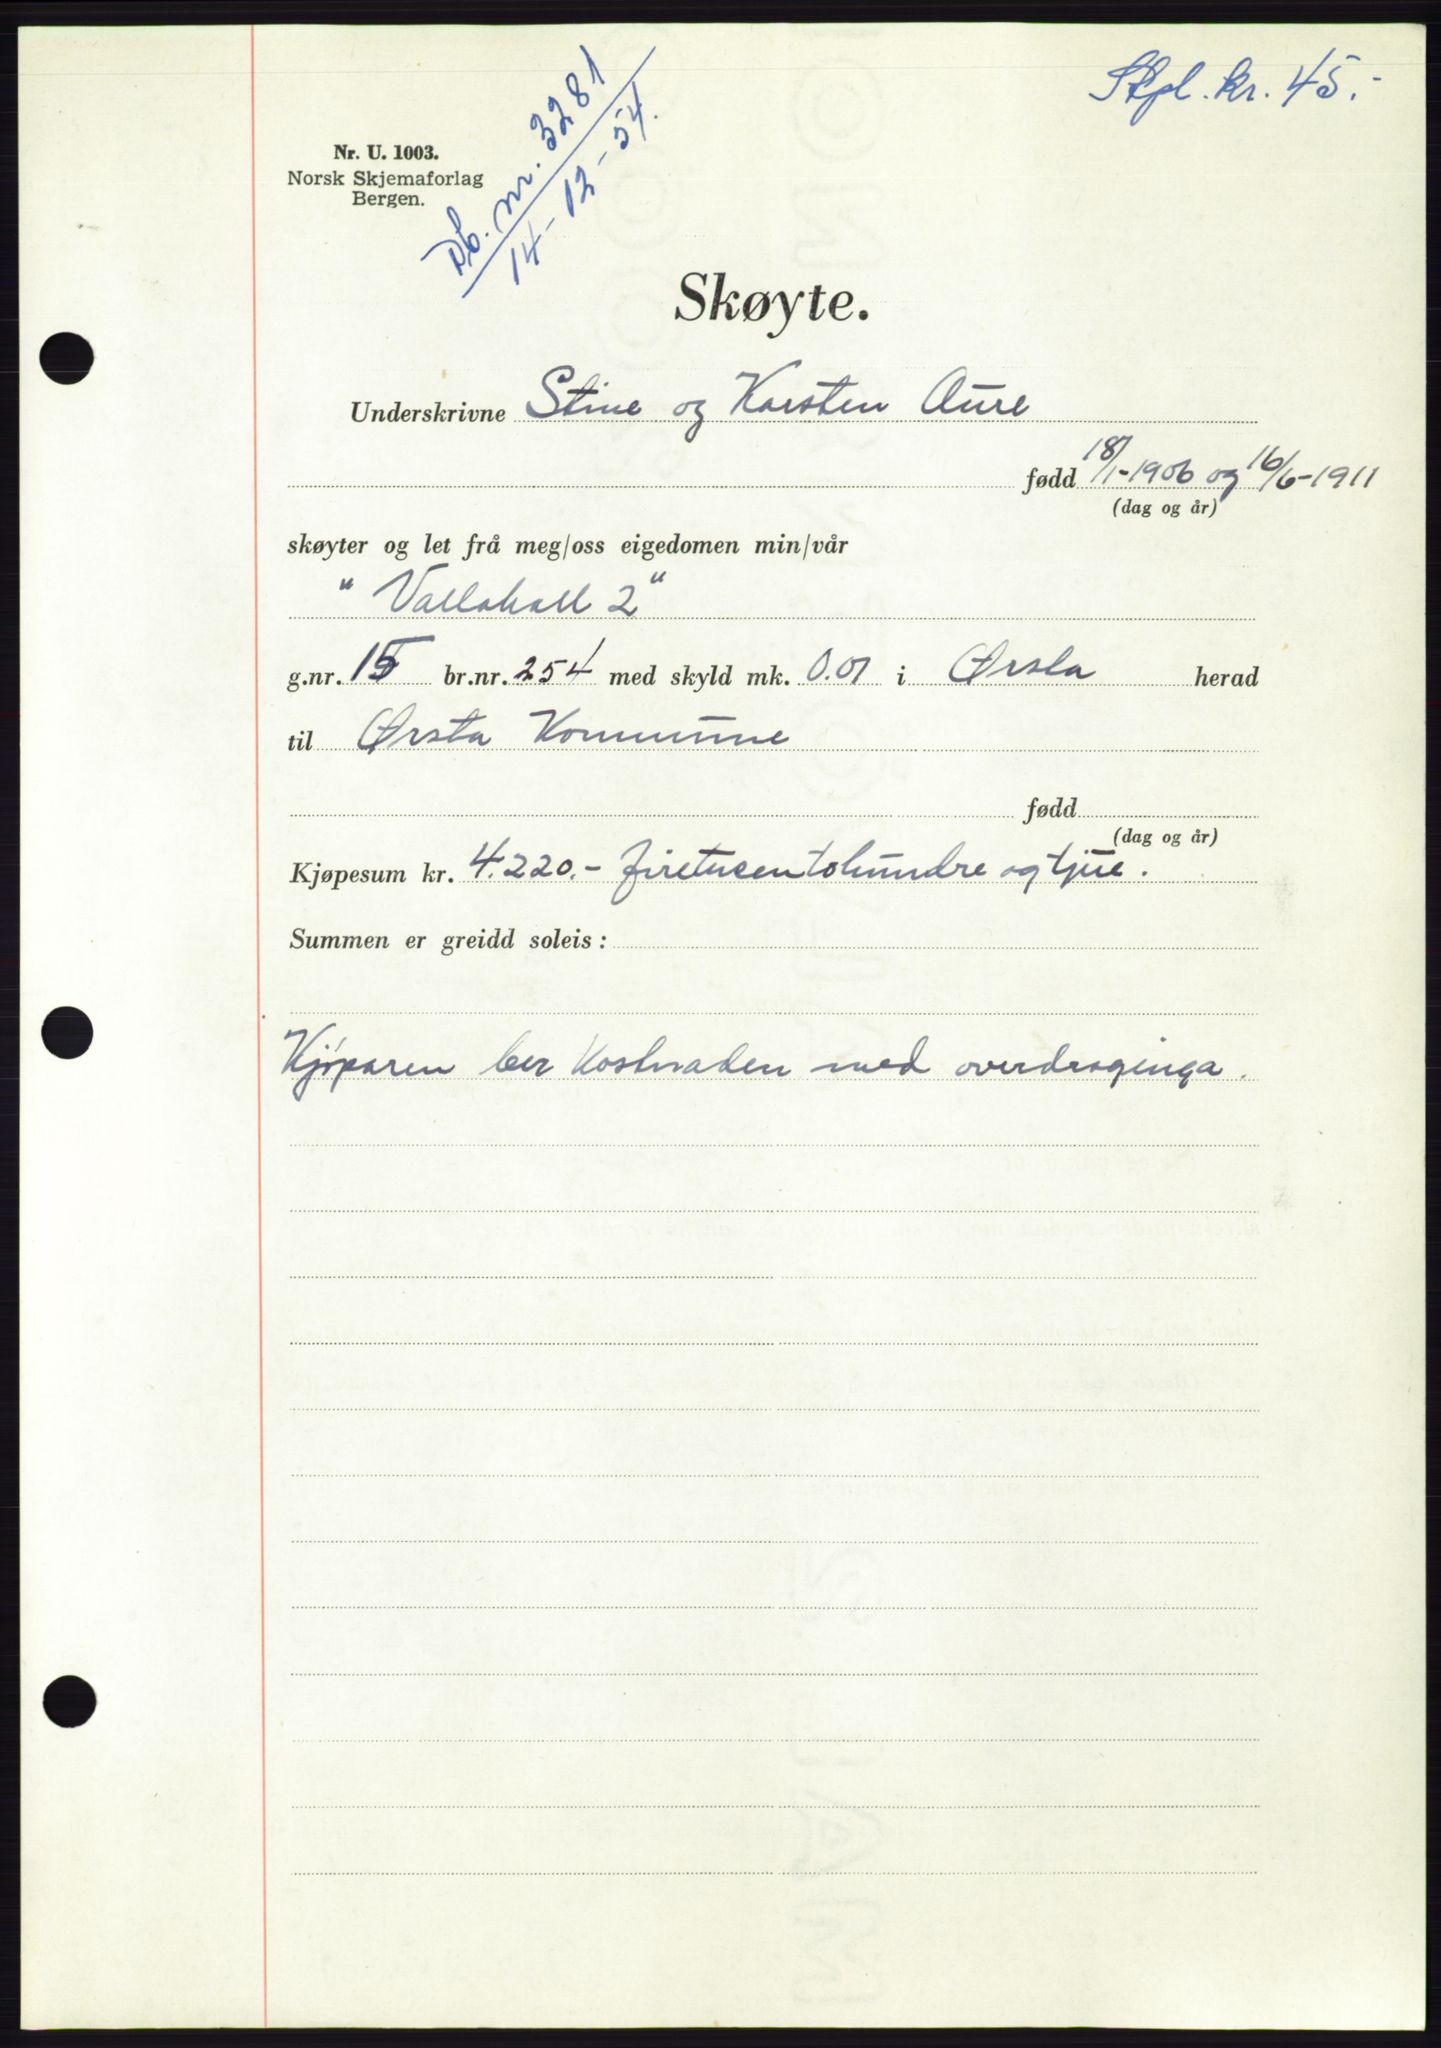 Stpl. kr. 45.-
Db. nr. 3281
14-12-54.
Nr. U. 1003.
Norsk Skjemaforlag
Bergen.
Skøyte.
Underskrivne Stine og Karsten Aure
fødd 18/1-1906 og 16/6-1911
(dag og år)
skøyter og let frå meg/oss eigedomen min/vår
"Vallahall 2"
g.nr. 15 br.nr. 254 med skyld mk. 0.01 i Ørsta herad
til Ørsta Kommune
fødd
(dag og år)
Kjøpesum kr. 4.220.- firetusentohundre og tjue.
Summen er greidd soleis:
Kjøparen ber kostnaden med overdraginga.